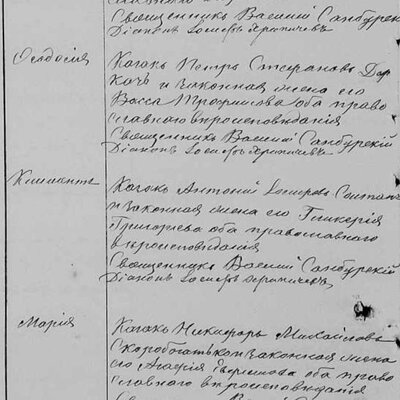 Священникъ Василій Самбурскій
Діаконъ Іосифъ
Ѳеодосія
Козакъ Петръ Стефановъ Дер
качъ и законная жена его
Васса Трофимова оба право
славнаго вѣроисповѣданія
Священникъ Василій Самбурскій
Діаконъ Іосифъ
Климентъ
Козакъ Антоній
и законная жена его Гликерія
Григорьева оба православнаго
вѣроисповѣданія
Священникъ Василій Самбурскій
Діаконъ Іосифъ
Марія
Козакъ Никифоръ Михайловъ
Скоробогатько и законная жена
его Агафія Ефимова оба право
славнаго вѣроисповѣданія